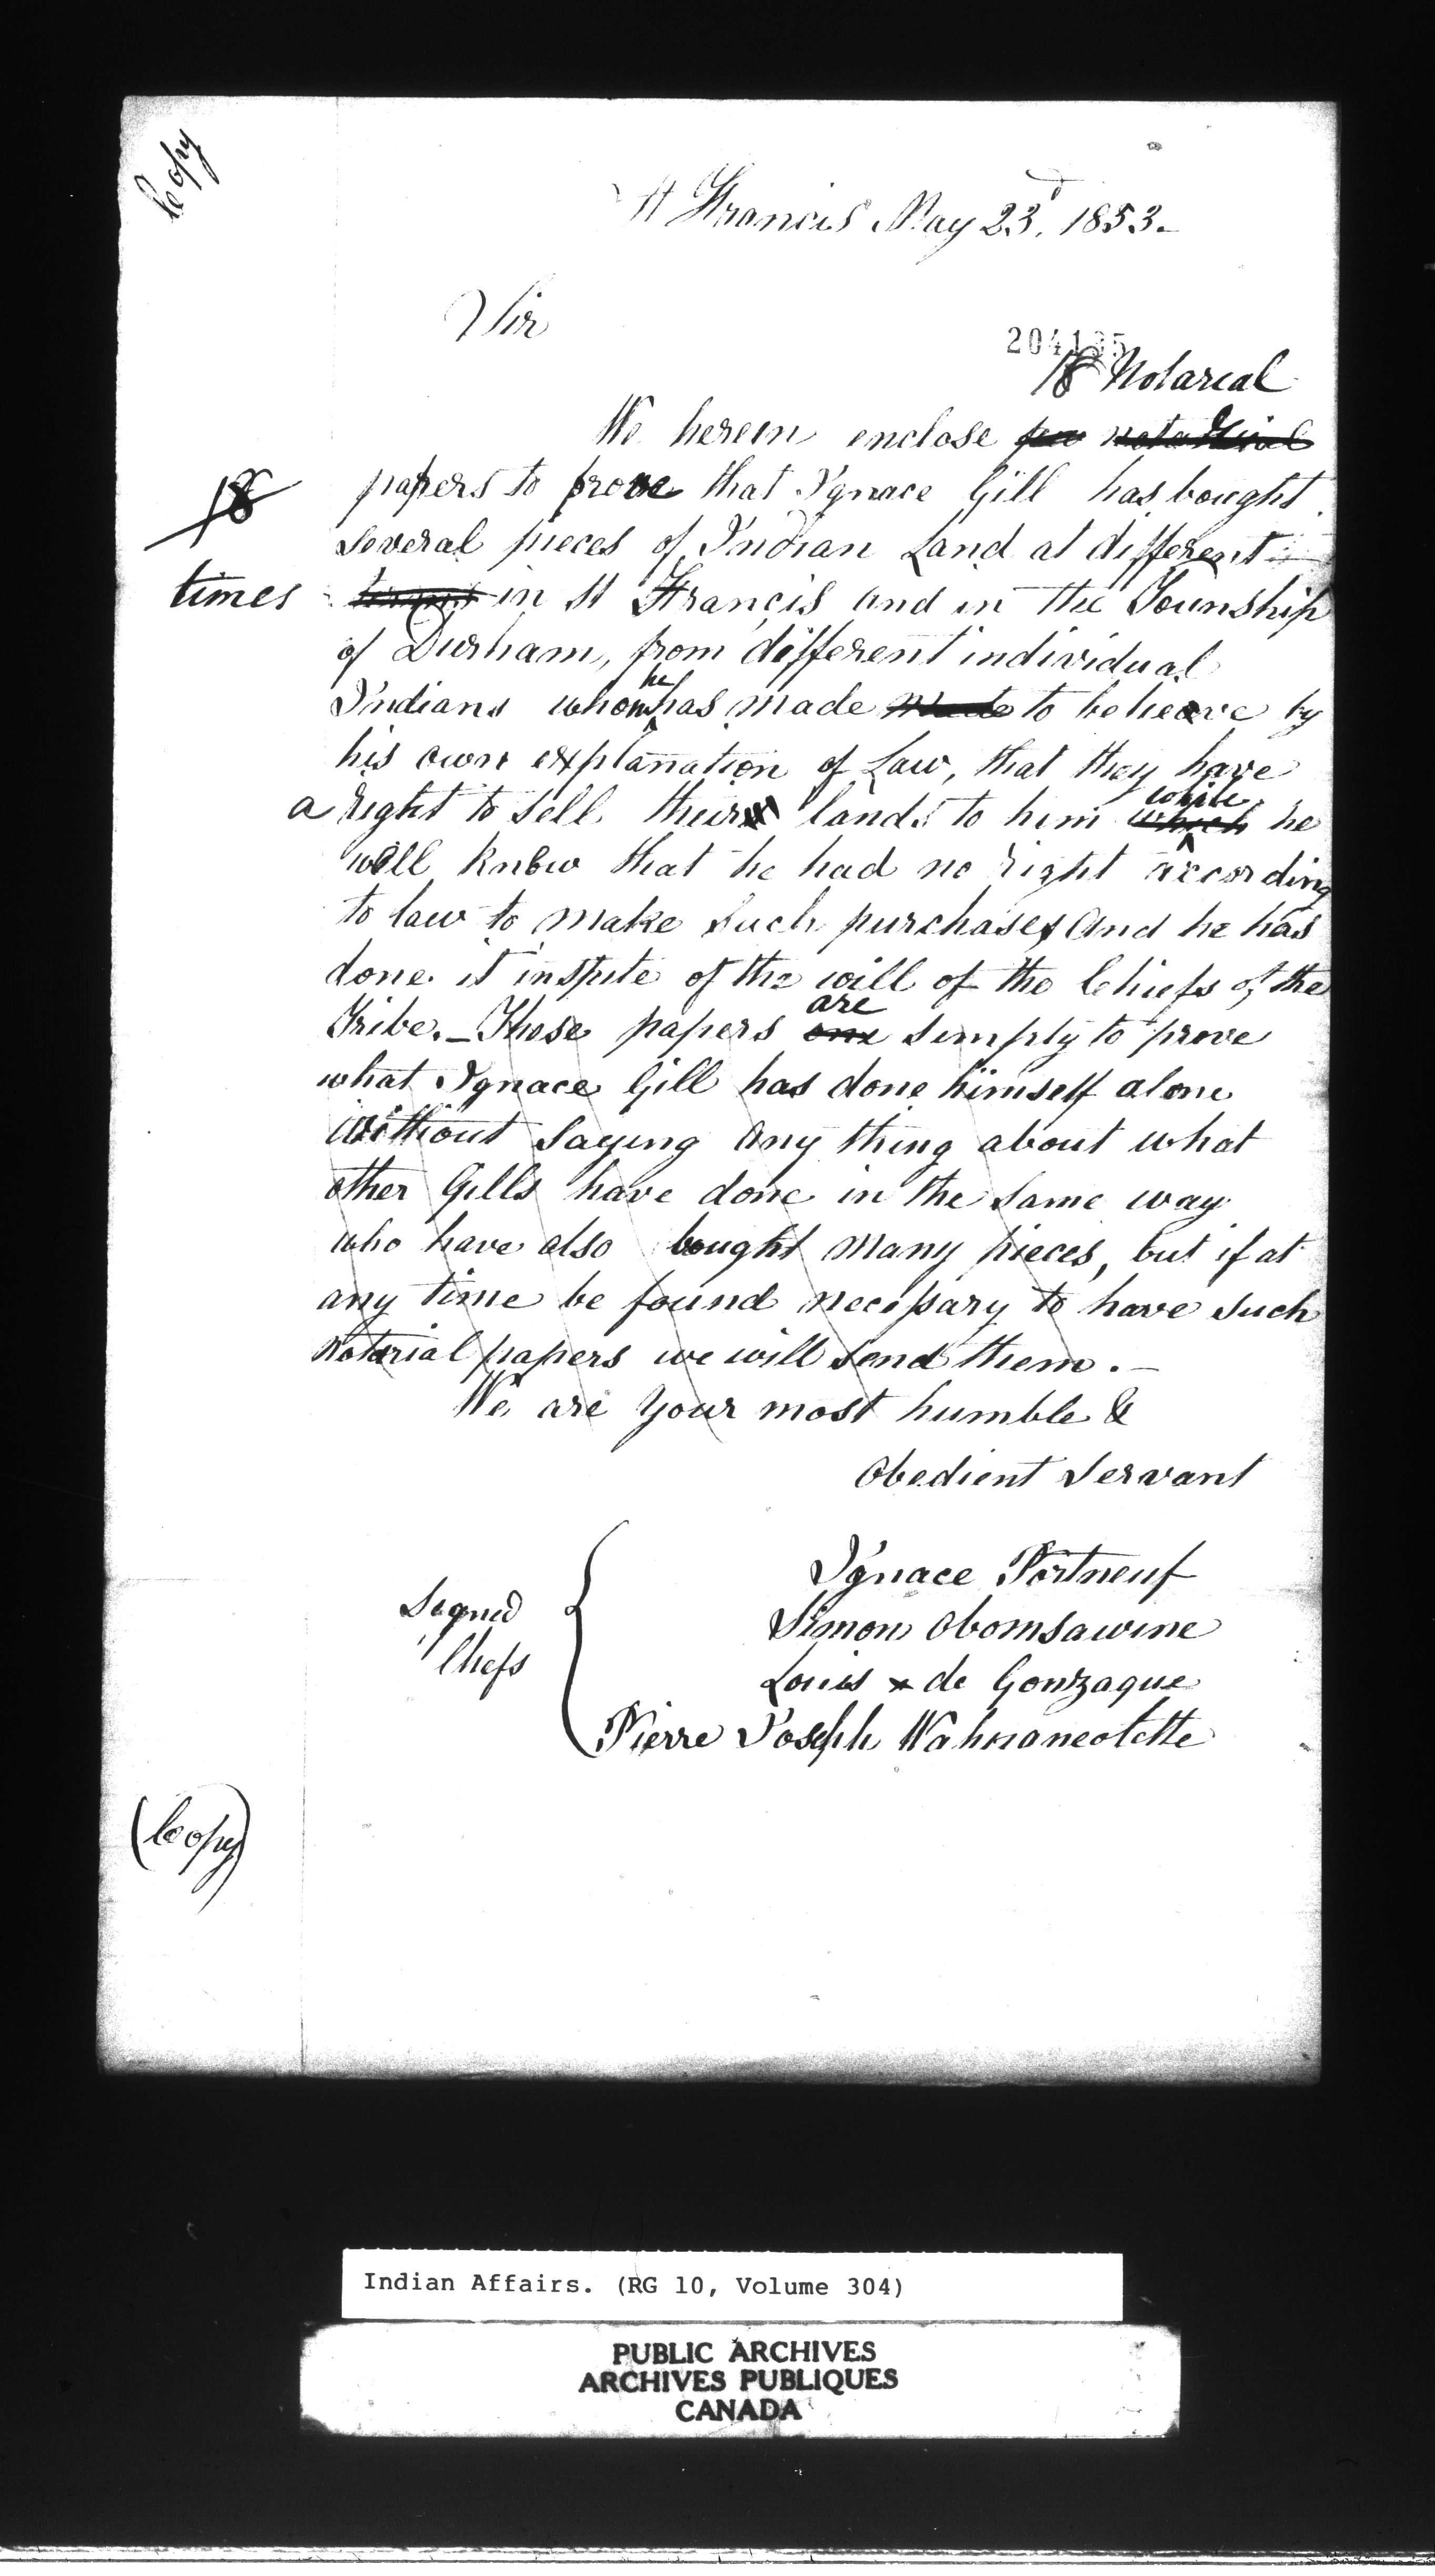 Copy
St Francis May 23d. 1853.
Sir
18 Notareal
We herein enclose
18
papers to prove that Ignace Gill has bought
several pieces of Indian Land at different
times
in St Francis and in the Township
of Durham, from different individual
he
Indians whom has made made to beheave by
his own explanation of Law, that they have
while
a right to sell their lands to him which he
well knew that he had no right according
to law to make such purchases and he has
done it inspite of the will of the Chiefs of the
are
Tribe._ These papers one simply to prove
what Ignace Gill has done himself alone
without saying any thing about what
other Gills have done in the same way
who have also bought many pieces, but if at
any time be found necessary to have such
notarial papers we will send them._
We are your most humble &
Obedient Servant
Ignace Portneuf
Signed
Simon Obomsawine
Chefs
Louis x de Gonzague
Pierre Joseph
(Copy)
Indian Affairs. (RG 10, Volume 304)
PUBLIC ARCHIVES
ARCHIVES PUBLIQUES
CANADA